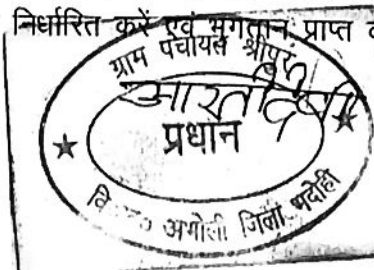 निर्धारित करें एवं भुगतान प्राप्त
ग्राम पंचायत श्रीपुर
आरती देवी
प्रधान
अभोली जिला भदोही